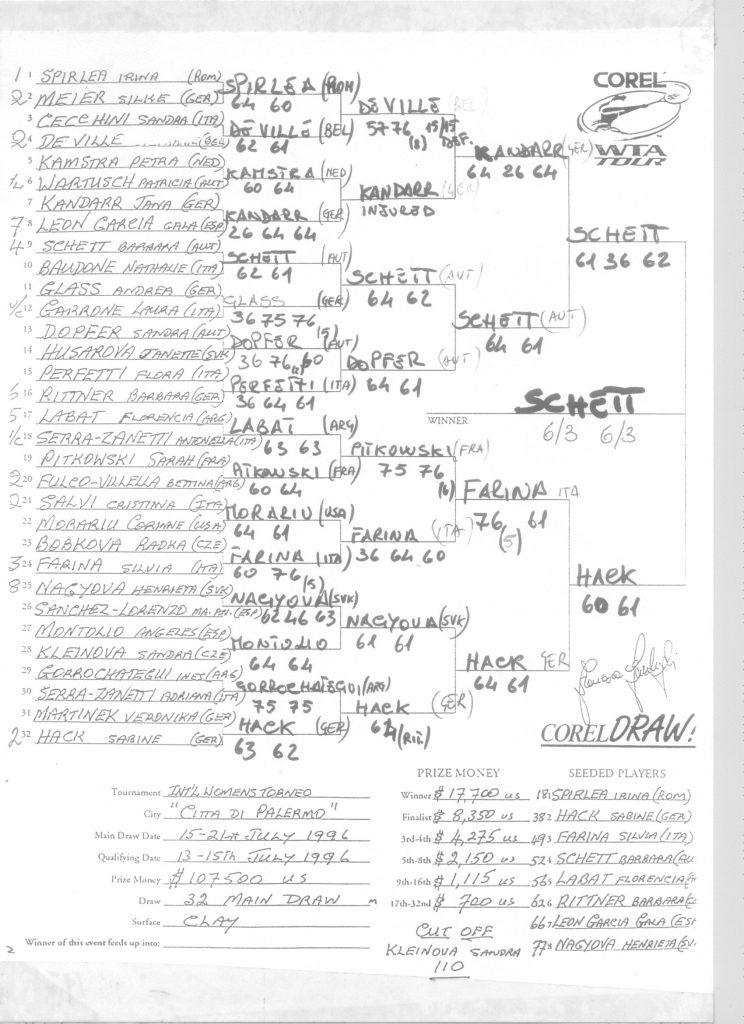 1 1 SPIRLEA IRINA (ROM)
Q 2 MEIER SILKE (GER)
3 CECCHINI SANDRA (ITA)
Q 4 DE VILLE (BEL)
5 KAMSTRA PETRA (NED)
6 WARTUSCH PATRICIA (AUT)
7 KANDARR JANA (GER)
7 8 LEON GARCIA GALA (ESP)
4 9 SCHETT BARBARA (AUT)
10 BAUDONE NATHALIE (ITA)
11 GLASS ANDREA (GER)
W/C 12 GARRONE LAURA (ITA)
13 DOPFER SANDRA (AUT)
14 HUSAROVA JANETTE (SVK)
15 PERFETTI FLORA (ITA)
6 16 RITTNER BARBARA (GER)
5 17 LABAT FLORENCIA (ARG)
W/C 18 SERRA-ZANETTI ANTONELLA (ITA)
19 PITKOWSKI SARAH (FRA)
Q 20 FULCO-VILLELLA BETTINA (ARG)
Q 21 SALVI CRISTINA (ITA)
22 MORARIU CORINNE (USA)
23 BOBKOVA RADKA (CZE)
3 24 FARINA SILVIA (ITA)
8 25 NAGYOVA HENRIETA (SVK)
26 SANCHEZ-LORENZO MA. (ESP)
27 MONTOLIO ANGELES (ESP)
28 KLEINOVA SANDRA (CZE)
29 GORROCHATEGUI INES (ARG)
30 SERRA-ZANETTI ADRIANA (ITA)
31 MARTINEK VERONIKA (GER)
2 32 HACK SABINE (GER)
SPIRLEA (ROM)
64 60
DE VILLE (BEL)
62 61
KAMSTRA (NED)
60 64
KANDARR (GER)
26 64 64
SCHETT (AUT)
62 61
GLASS (GER)
36 75 76
(5)
DOPFER (AUT)
36 76 60
PERFETTI (ITA)
36 64 61
LABAT (ARG)
63 63
PITKOWSKI (FRA)
60 64
MORARIU (USA)
64 61
FARINA (ITA)
60 76
(5)
NAGYOVA (SVK)
62 46 63
MONTOLIO
64 64
GORROCHATEGUI (ARG)
75 75
HACK (GER)
63 62
DE VILLE (BEL)
57 76 15/15
(8) DEF.
KANDARR (GER)
INJURED
SCHETT (AUT)
64 62
DOPFER (AUT)
64 61
PITKOWSKI (FRA)
75 76
(6)
FARINA (ITA)
36 64 60
NAGYOVA (SVK)
61 61
HACK (GER)
64 (RIT.)
KANDARR (GER)
64 26 64
SCHETT (AUT)
64 61
FARINA ITA
76 61
(5)
HACK GER
64 61
SCHETT
61 36 62
HACK
60 61
WINNER
SCHETT
6/3 6/3
COREL
WTA
TOUR
COREL DRAW!
Tournament INT'L WOMENS TORNEO
City "CITTA DI PALERMO"
Main Draw Date 15-21st JULY 1996
Qualifying Date 13-15th JULY 1996
Prize Money $107500 US
Draw 32 MAIN DRAW
Surface CLAY
Winner of this event feeds up into:
2
PRIZE MONEY
Winner $ 17,700 US
Finalist $ 8,350 US
3rd-4th $ 4,275 US
5th-8th $ 2,150 US
9th-16th $ 1,115 US
17th-32nd $ 700 US
CUT OFF
KLEINOVA SANDRA
110
SEEDED PLAYERS
18 1 SPIRLEA IRINA (ROM)
38 2 HACK SABINE (GER)
49 3 FARINA SILVIA (ITA)
52 4 SCHETT BARBARA (AU
56 5 LABAT FLORENCIA (A
62 6 RITTNER BARBARA (G
66 7 LEON GARCIA GALA (ESP
77 8 NAGYOVA HENRIETA (SV